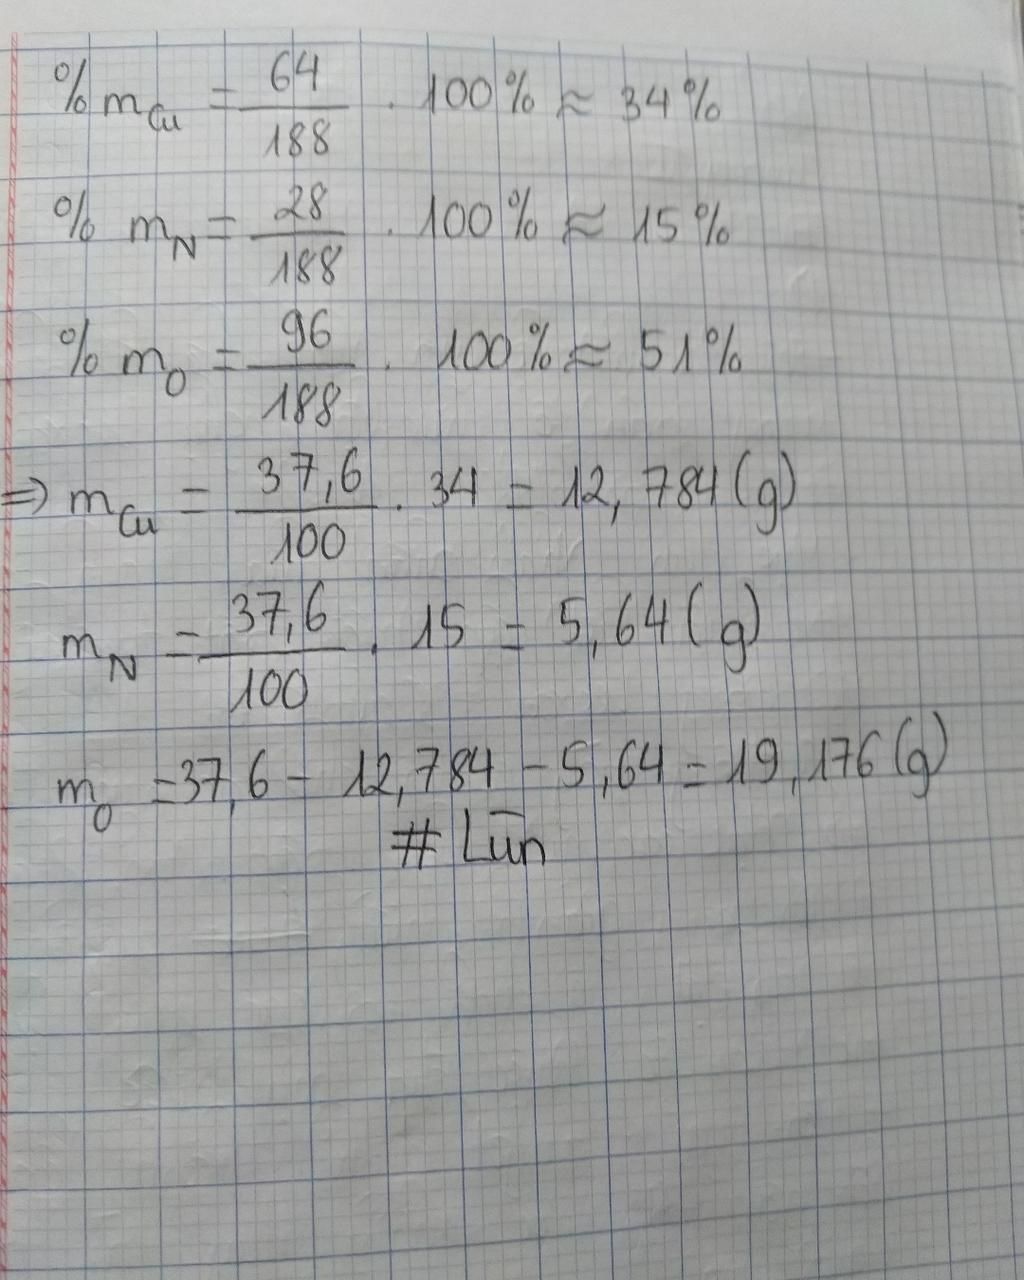 % m_Cu = 64/188 . 100% ≈ 34%
% m_N = 28/188 . 100% ≈ 15%
% m_O = 96/188 . 100% ≈ 51%
⇒ m_Cu = 37,6/100 . 34 = 12,784 (g)
m_N = 37,6/100 . 15 = 5,64 (g)
m_O = 37,6 - 12,784 - 5,64 = 19,176 (g)
# Lūn